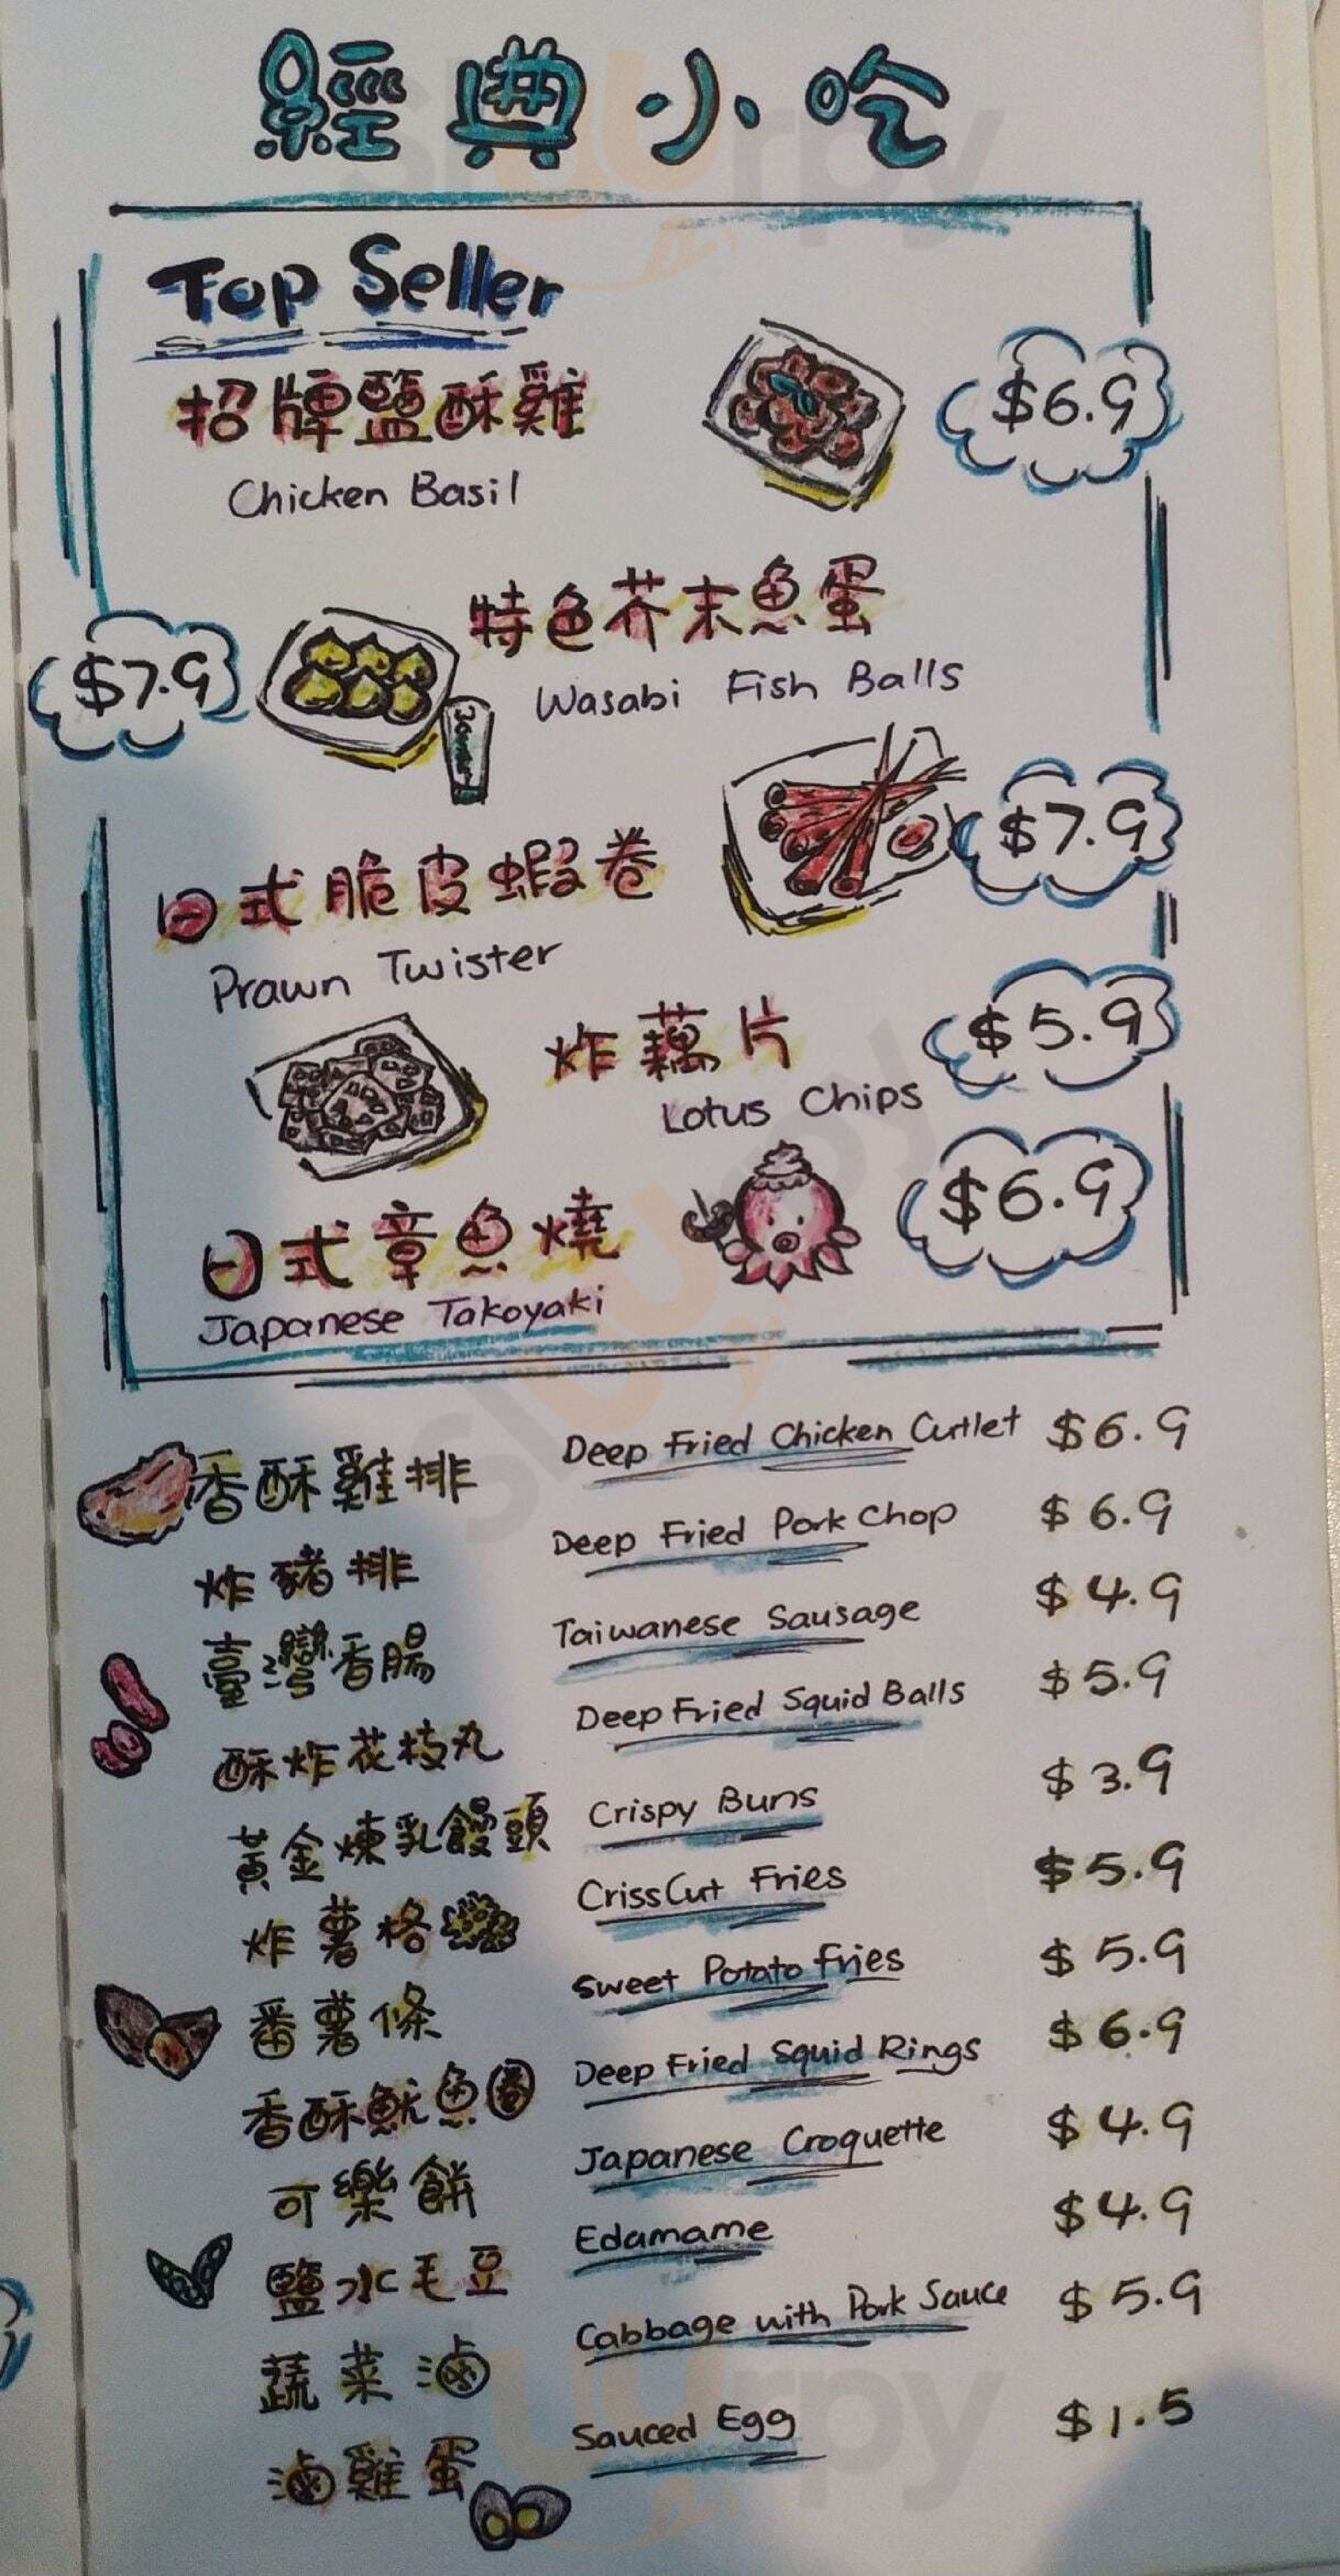 經典小吃
Top Seller
招牌鹽酥雞
$6.9
Chicken Basil
特色芥末魚蛋
$7.9
Wasabi Fish Balls
日式脆皮蝦卷
$7.9
Prawn Twister
炸藕片
$5.9
Lotus Chips
日式章魚燒
$6.9
Japanese Takoyaki
香酥雞排 Deep Fried Chicken Cutlet $6.9
炸豬排 Deep Fried Pork Chop $6.9
臺灣香腸 Taiwanese Sausage $4.9
酥炸花枝丸 Deep Fried Squid Balls $5.9
黃金煉乳饅頭 Crispy Buns $3.9
炸薯格 CrissCut Fries $5.9
番薯條 Sweet Potato Fries $5.9
香酥魷魚圈 Deep Fried Squid Rings $6.9
可樂餅 Japanese Croquette $4.9
鹽水毛豆 Edamame $4.9
蔬菜滷 Cabbage with Pork Sauce $5.9
滷雞蛋 Sauced Egg $1.5
slurpy
slurpy
slurpy